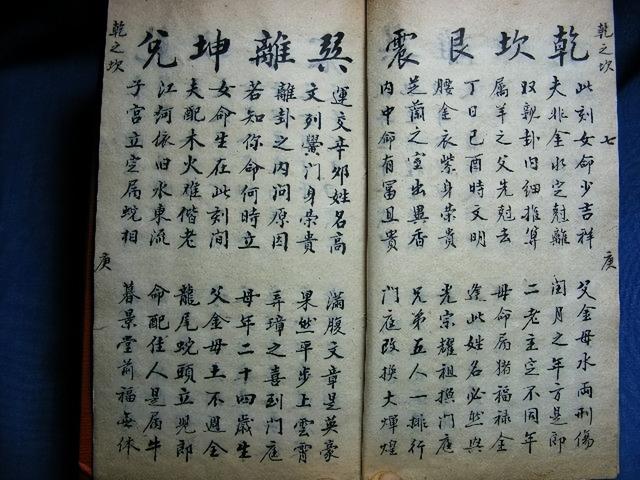 乾之坎 七 庚
乾坎艮震
此刻女命少吉祥 父金母水両刑傷
夫非金水定尅離 闰月之年方是郎
双親卦内細推算 二老主定不同年
属羊之父先尅去 母命属猪福禄全
丁日己酉時文明 逢此姓名必然與
腰金衣紫身荣貴 光宗耀祖換門庭
芝蘭之室出異香 兄弟五人一排行
内中命有富且貴 門庭改換大煇煌
巽離坤兌
運交辛夘姓名高 滿腹文章是英豪
文列黌门身荣貴 果然平步上雲霄
離卦之内问原因 弄璋之喜到门庭
若知你命何時立 母年二十四歲生
女命生在此刻间 父金母土不週全
夫配木火难偕老 龍尾蛇頭立児郎
江河依旧水東流 命配佳人是属牛
子宫立定属蛇相 暮景堂前福無休
乾之坎 庚